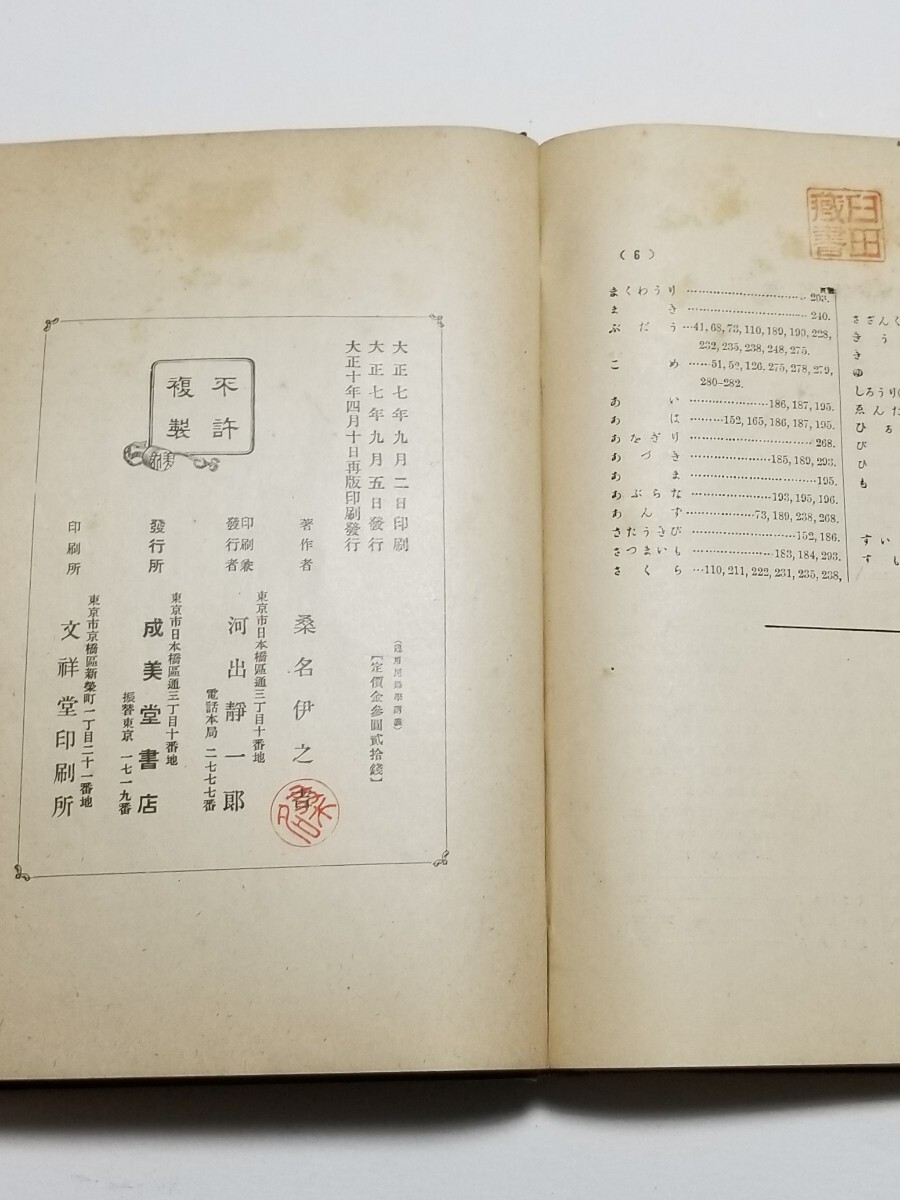 不許
複製
大正七年九月二日印刷
大正七年九月五日發行
大正十年四月十日再版印刷發行
【定價金參圓貳拾錢】
著作者 桑名伊之吉
印刷兼
發行者
東京市日本橋區通三丁目十番地
河出靜一郎
電話本局 二七七七番
發行所
東京市日本橋區通三丁目十番地
成美堂書店
振替東京 一七一九番
印刷所
東京市京橋區新榮町一丁目二十一番地
文祥堂印刷所
臼田
藏書
(6)
まくわうり……203.
まき……240.
ぶだう……41,68,73,110,189,190,228,
232,235,238,248,275.
こめ……51,52,126.275,278,279,
280-282.
あい……186,187,195.
あは……152,165,186,187,195.
あをぎり……268.
あづき……185,189,293.
あま……195.
あぶらな……193,195,196.
あんず……73,189,238,268.
さたうきび……152,186.
さつまいも……183,184,293.
さくら…110,211,222,231,235,238,
さざんく
きう
き
ゆ
しろうり(
ゑんだ
ひる
び
ひ
も
すい
すも